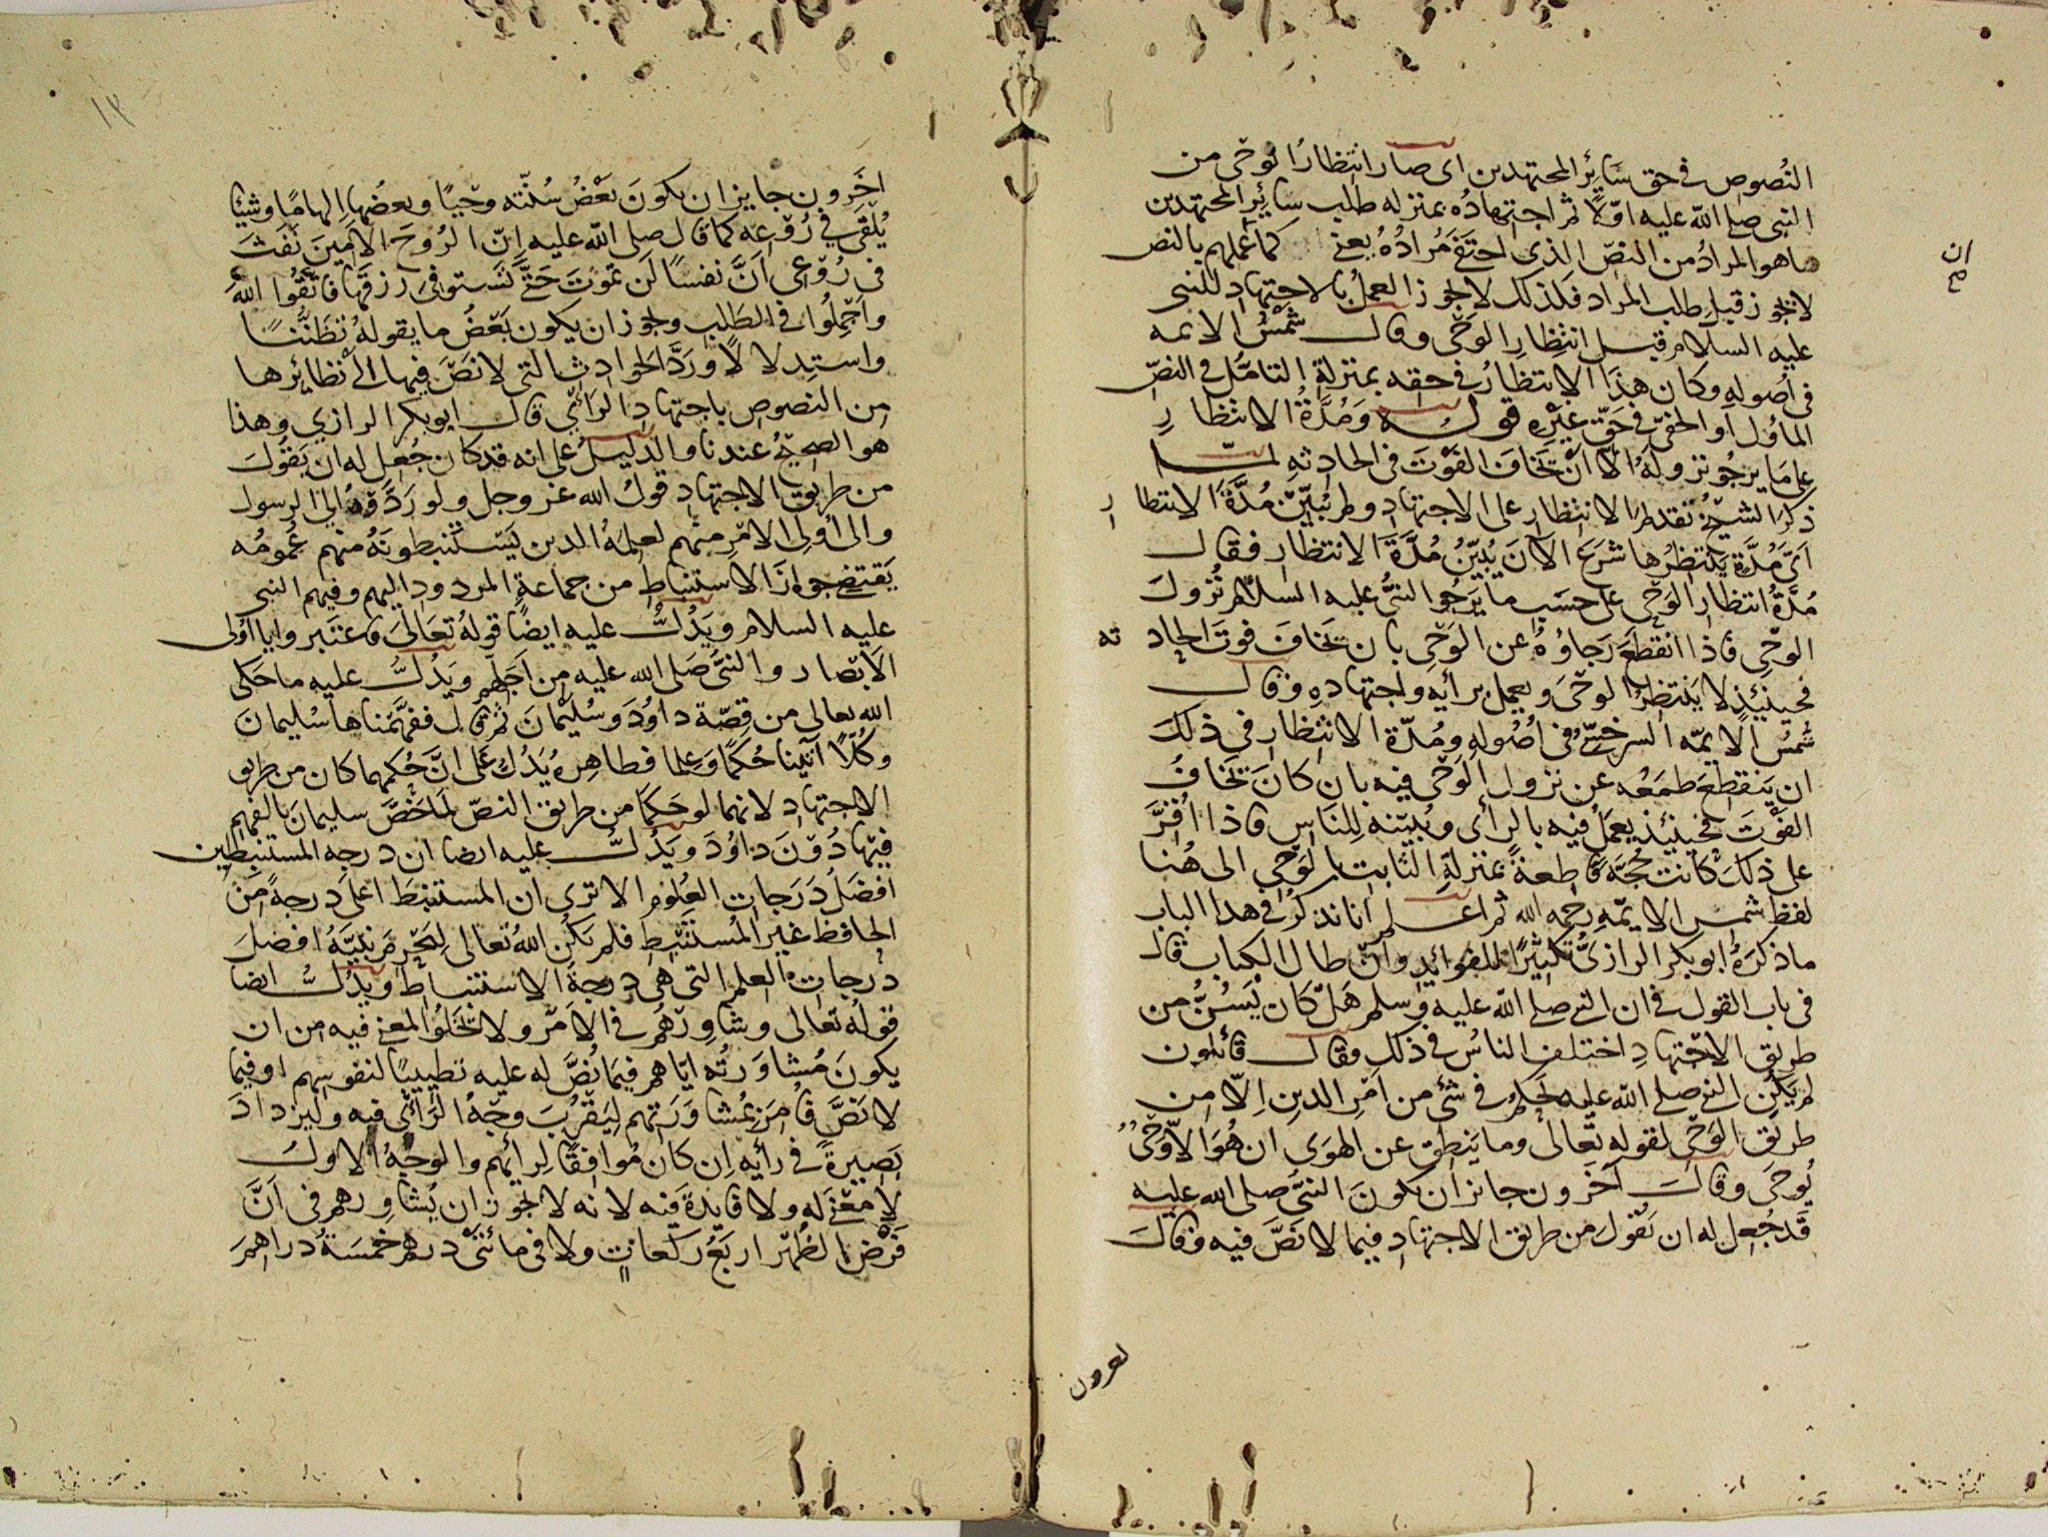 النصوص في حق سائر المجتهدين اى صار انتظار الوحى من
النبى صلى الله عليه اوّلًا ثم اجتهاده بمنزله طلب سائر المجتهدين
ما هو المراد من النصّ الذى اختفى مُرادُهُ يعنى كما عملهم بالنص
لا يجوز قبل طلب المراد فكذلك لا يجوز العمل بالاجتهاد للنبى
عليه السلام قبل انتظار الوحى وقال شمس الائمه
فى اصوله وكان هذا الانتظار فى حقه بمنزلة التامّل فى النصّ
الماؤل او الخفىّ فى حقّ غيره قوله ومُدّة الانتظار
على ما يرجو نزوله الا ان يخاف الفوت فى الحادثه لما
ذكر الشيخ تقديم الانتظار على الاجتهاد ولم يبيّن مُدّة الانتظار
اىّ مُدّة ينتظرها شرع الآن يُبيّن مُدّة الانتظار فقال
مُدّة انتظار الوحى على حسب ما يرجوا النبىّ عليه السلام نزول
الوحى فاذا انقطع رجاؤه عن الوحى بان يخاف فوت الحادثه
فحينئذ لا ينتظر الوحى ويعمل برأيه واجتهاده وقال
شمس الايمّه السرخسىّ فى اصوله ومُدّة الانتظار فى ذلك
ان ينقطع طمعُه عن نزول الوحى فيه بان كان يخاف
الفوت فحينئذ يعمل فيه بالرأى ويُبيّنه للناس فاذا اُقرّ
على ذلك كانت حُجّة قاطعةً بمنزلة الثابت بالوحى الى هُنا
لفظ شمس الايمّه رحمه الله ثم اعلم انا نذكر فى هذا الباب
ما ذكره ابو بكر الرازىّ تكثيرًا للفوائد وان طال الكتاب قال
فى باب القول فى ان النبى صلى الله عليه وسلم هل كان يَسُنّ من
طريق الاجتهاد اختلف الناس فى ذلك فقال قائلون
لم يكن النبى صلى الله عليه يحكم فى شئ من امر الدين الّا من
طريق الوحى لقوله تعالى وما ينطق عن الهوى ان هو الّا وحىٌ
يُوحى وقال آخرون جائز ان يكون النبىّ صلى الله عليه
قد جُعل له ان يقول من طريق الاجتهاد فيما لا نصّ فيه وقال
ان
صح
اخرون جايز ان يكون بعض سُنّته وحيًا وبعضها الهامًا وشيئا
يُلقى فى رُوعه كما قال صلى الله عليه انّ الروح الامين نفث
فى رُوعى انّ نفسًا لن تموت حتّى تستوفى رزقها فاتّقوا الله
واجملوا فى الطلب ويجوز ان يكون بعض ما يقوله تظنّنًا
واستدلالًا وردّ الحوادث التى لا نصّ فيها الى نظائرها
من النصوص باجتهاد الرائى قال ابو بكر الرازي وهذا
هو الصحيح عندنا والدليل على انه قد كان جُعل له ان يقول
من طريق الاجتهاد قول الله عز وجل ولو ردّوه الى الرسول
والى اُولى الامر منهم لعلمه الذين يستنبطونه منهم عمومُه
يقتضى جواز الاستنباط من جماعة المردود اليهم وفيهم النبى
عليه السلام ويدُلّ عليه ايضًا قوله تعالى فاعتبروا يا اُولى
الابصار والنبىّ صلى الله عليه من اجلّهم ويدُلّ عليه ما حكى
الله تعالى من قصّة داود وسليمان ثم قال ففهّمناها سليمان
وكُلًّا آتينا حُكمًا وعِلما فظاهره يدُلّ على انّ حُكمهما كان من طريق
الاجتهاد لانهما لو حكما من طريق النصّ لما خُصّ سليمان بالفهم
فيها دُون داود ويدُلّ عليه ايضا ان درجة المستنبطين
افضل درجات العُلوم الا ترى ان المستنبط اعلى درجةً من
الحافظ غير المستنبط فلم يكن الله تعالى ليحرم نبيّه افضل
درجات العلم التى هى درجة الاستنباط ويدُلّ ايضا
قوله تعالى وشاورهم فى الامر ولا يخلوا المعنى فيه من ان
يكون مُشاورته ايّاهم فيما نُصّ له عليه تطييبًا لنفوسهم او فيما
لا نصّ فامر بمشاورتهم ليقرُب وجهُ الرائى فيه وليزداد
بصيرةً فى رأيه ان كان مُوافقًا لرأيهم والوجه الاول
لا معنى له ولا فايدة فيه لانه لا يجوز ان يُشاورهم فى انّ
فرض الظهر اربع ركعات ولا فى مائتى درهم خمسة دراهم